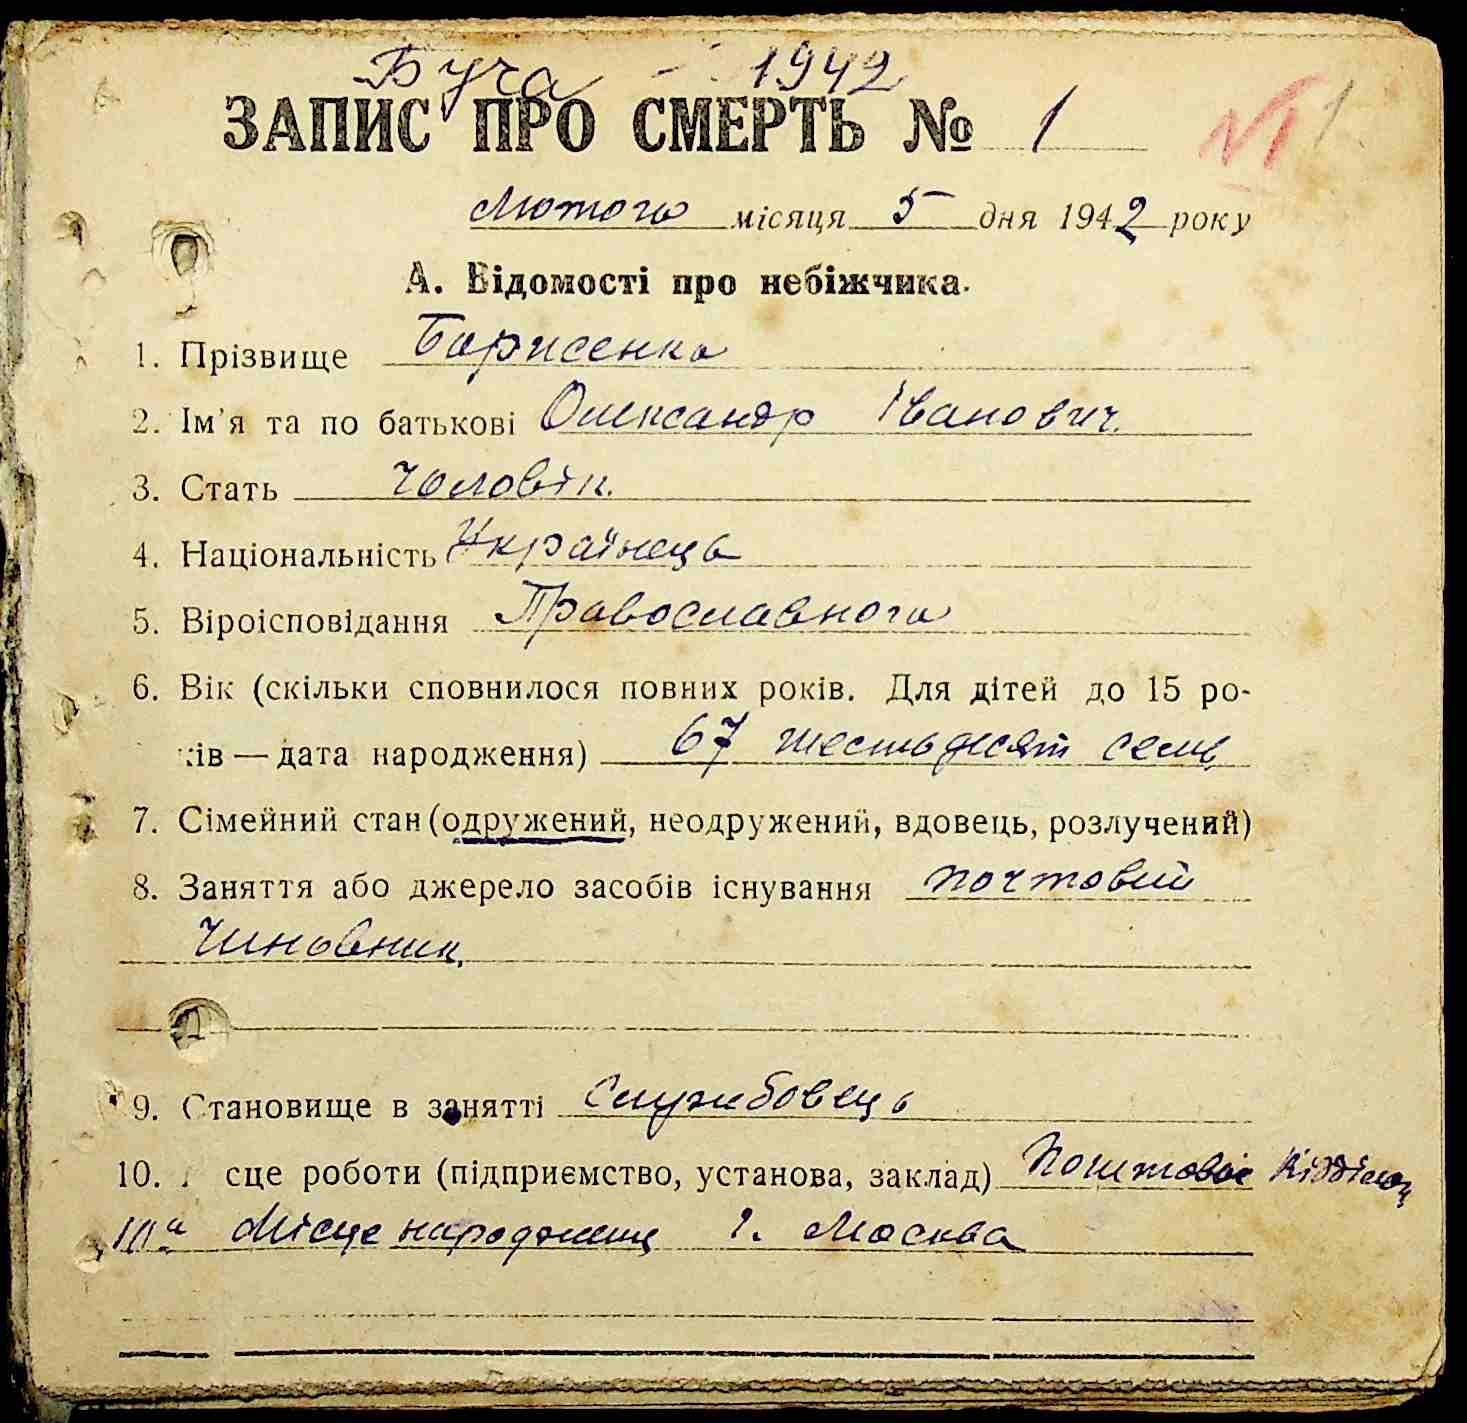 Буча - 1942
ЗАПИС ПРО СМЕРТЬ № 1
№1 1
лютого місяця 5 дня 1942 року
А. Відомості про небіжчика.
1. Прізвище Борисенко
2. Ім'я та по батькові Олександр Іванович.
3. Стать чоловік.
4. Національність Українець
5. Віроісповідання Православного
6. Вік (скільки сповнилося повних років. Для дітей до 15 ро-
ків — дата народження) 67 шестьдесят семь
7. Сімейний стан (одружений, неодружений, вдовець, розлучений)
8. Заняття або джерело засобів існування почтовий
чиновник.
9. Становище в занятті Службовець
10. сце роботи (підприємство, установа, заклад) Поштове
10а Місце народження г. Москва